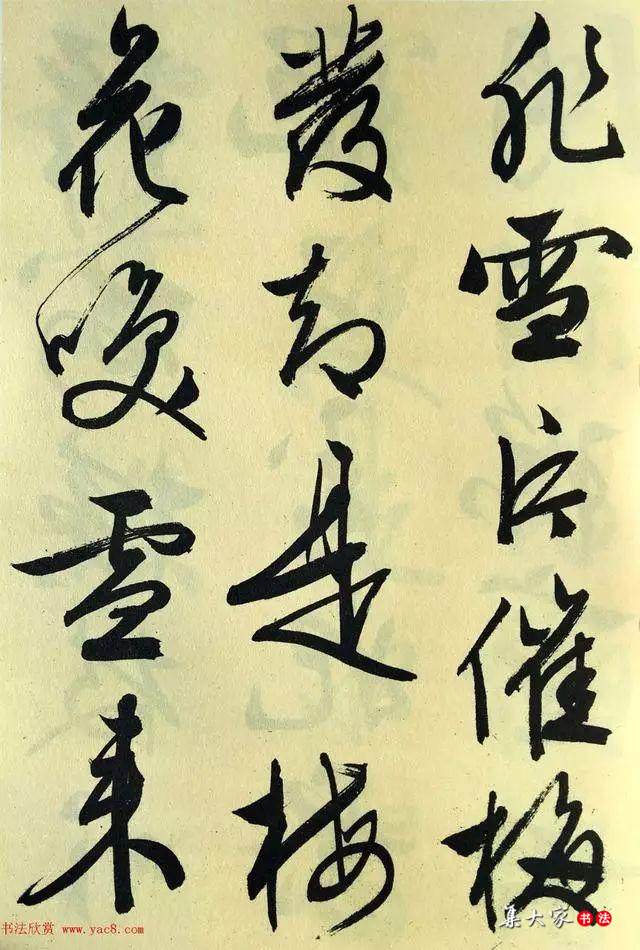 非雪片催梅
發却是梅
花喚雪来
书法欣赏 www.yac8.com
集大家书法